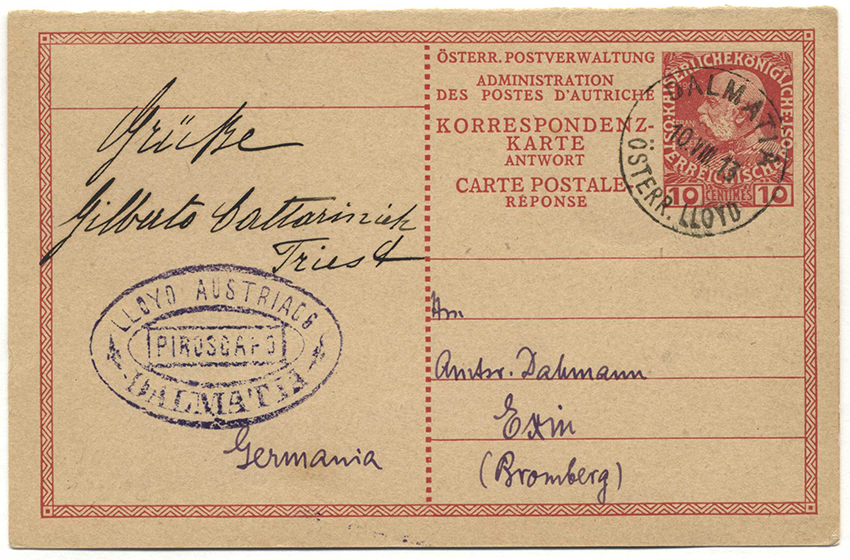 Grüße
Gilberto Cattarinich
Triest
LLOYD AUSTRIACO
PIROSCAFO
DALMATIA
Germania
ÖSTERR. POSTVERWALTUNG
ADMINISTRATION
DES POSTES D'AUTRICHE
KORRESPONDENZ-
KARTE
ANTWORT
CARTE POSTALE
RÉPONSE
KAISERLICHE KÖNIGLICHE
ÖSTERREICHISCHE
10 CENTIMES 10
DALMATIA
10 VIII 13
ÖSTERR. LLOYD
An
Amtsr. Dahmann
Exin
(Bromberg)